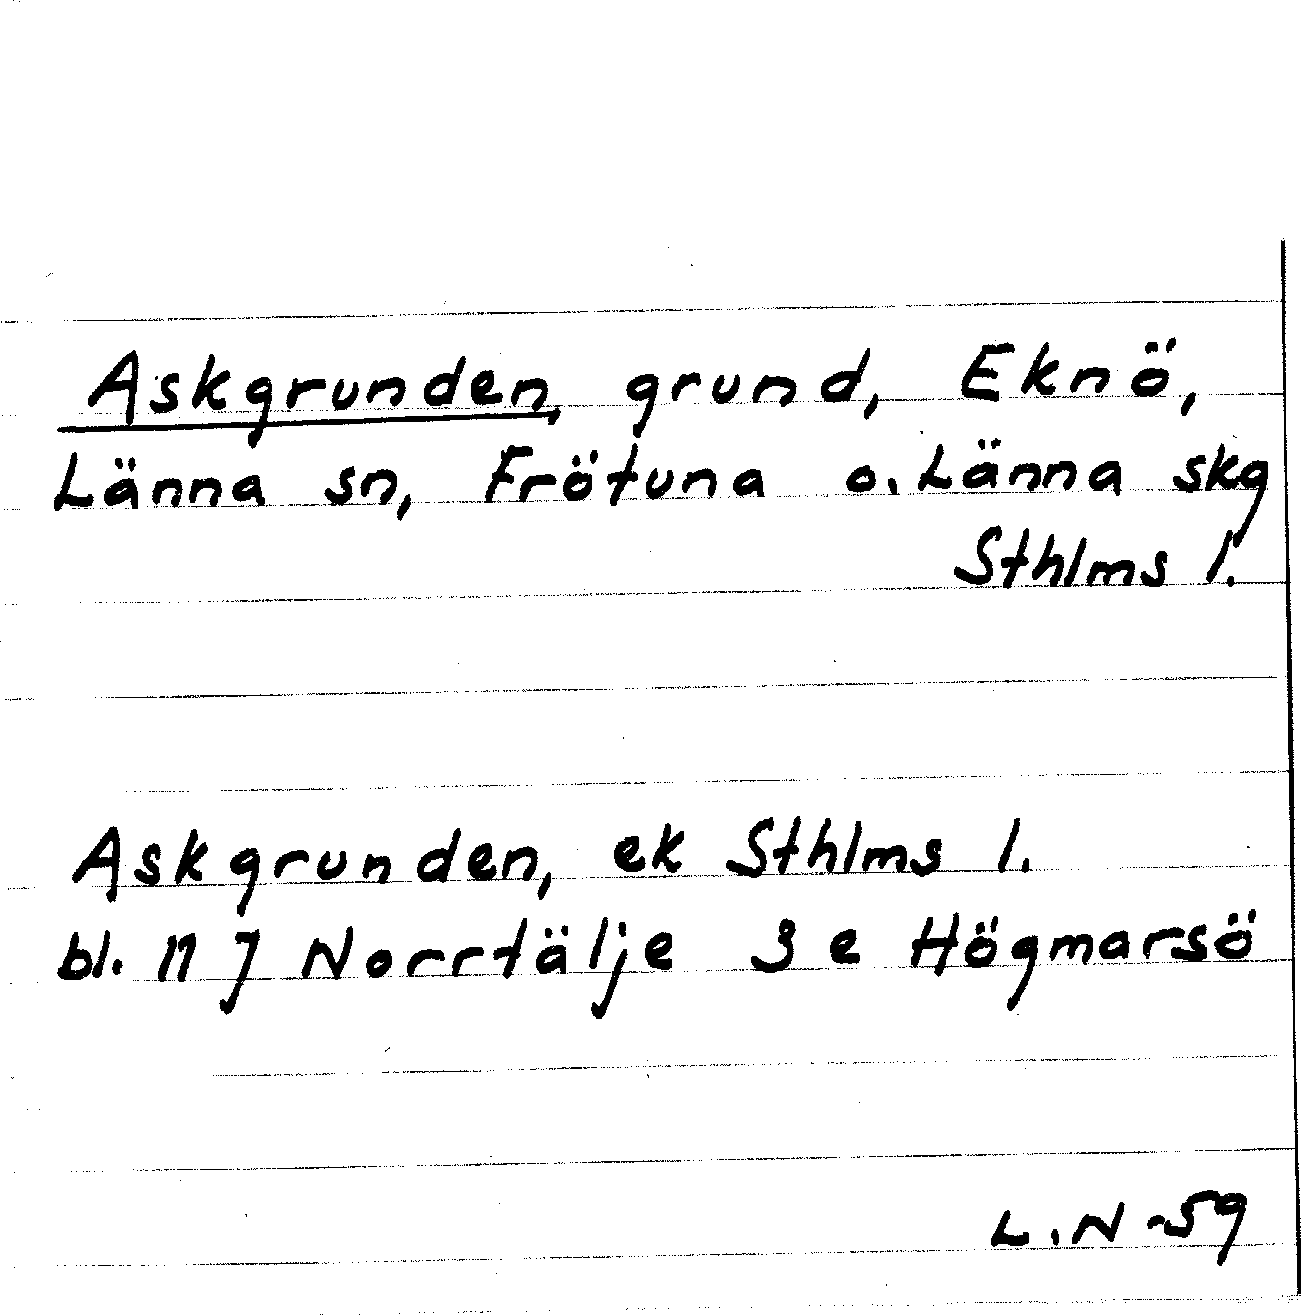 Askgrunden, grund, Eknö,
Länna sn, Frötuna o. Länna skg
Sthlms l.
Askgrunden, ek Sthlms l.
bl. 11 J Norrtälje 3 e Högmarsö
L.N -59